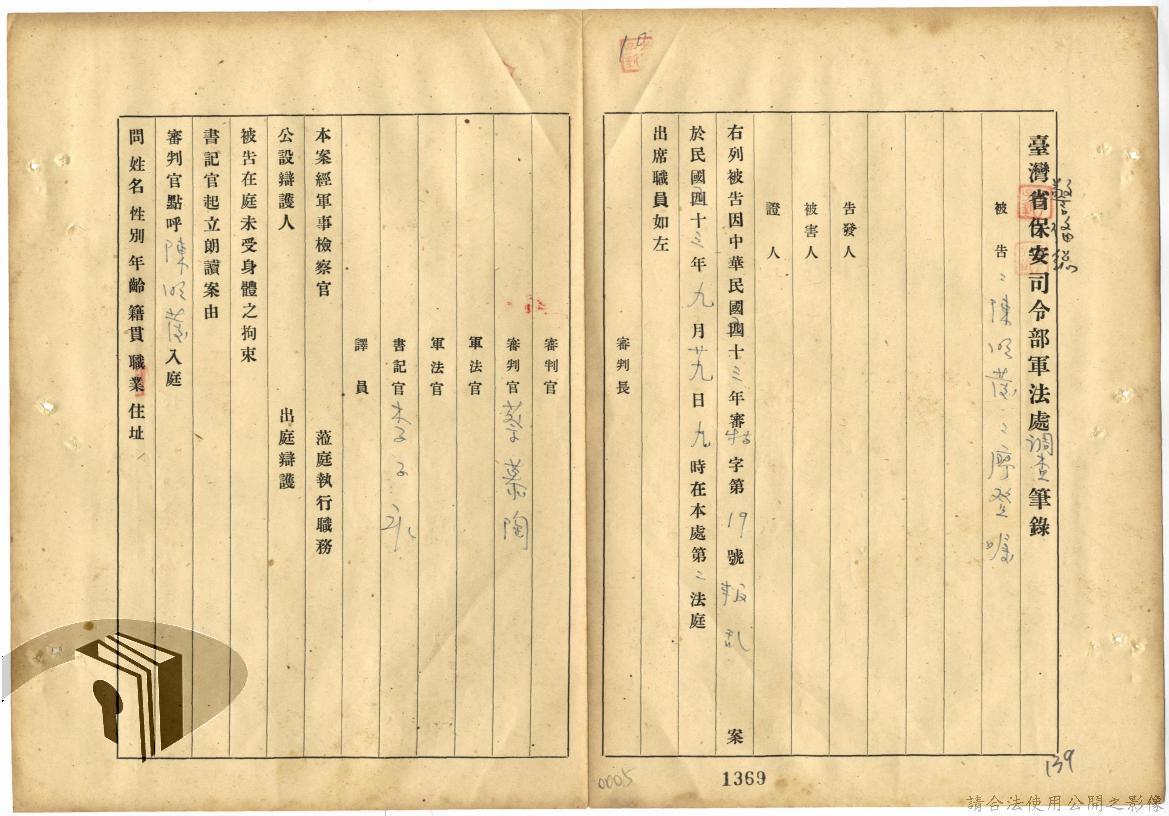 臺灣省保安司令部軍法處調查筆錄
被告：陳明·廖登
告發人
被害人
證人
右列被告因中華民國四十三年審特字第19號叛乱案
於民國四十三年九月廿九日九時在本處第二法庭
出席職員如左
審判長
審判官
審判官 蔡慕陶
軍法官
軍法官
書記官 李子
譯員
本案經軍事檢察官 蒞庭執行職務
公設辯護人 出庭辯護
被告在庭未受身體之拘束
書記官起立朗讀案由
審判官點呼陳明入庭
問姓名性別年齡籍貫職業住址
139
1369
0005
請合法使用公開之影像